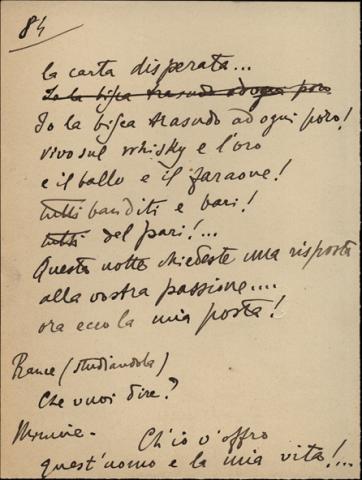 84
la carta disperata...
Io la bisca trasudo ad ogni poro
Io la bisca trasudo ad ogni poro!
vivo sul whisky e l'oro
e il ballo e il faraone!
tutti banditi e bari!
tutti del pari!...
Questa notte chiedeste una risposta
alla vostra passione....
ora ecco la mia posta!
Rance (studiandola)
Che vuoi dire?
Minnie - Ch'io v'offro
quest'uomo e la mia vita!...